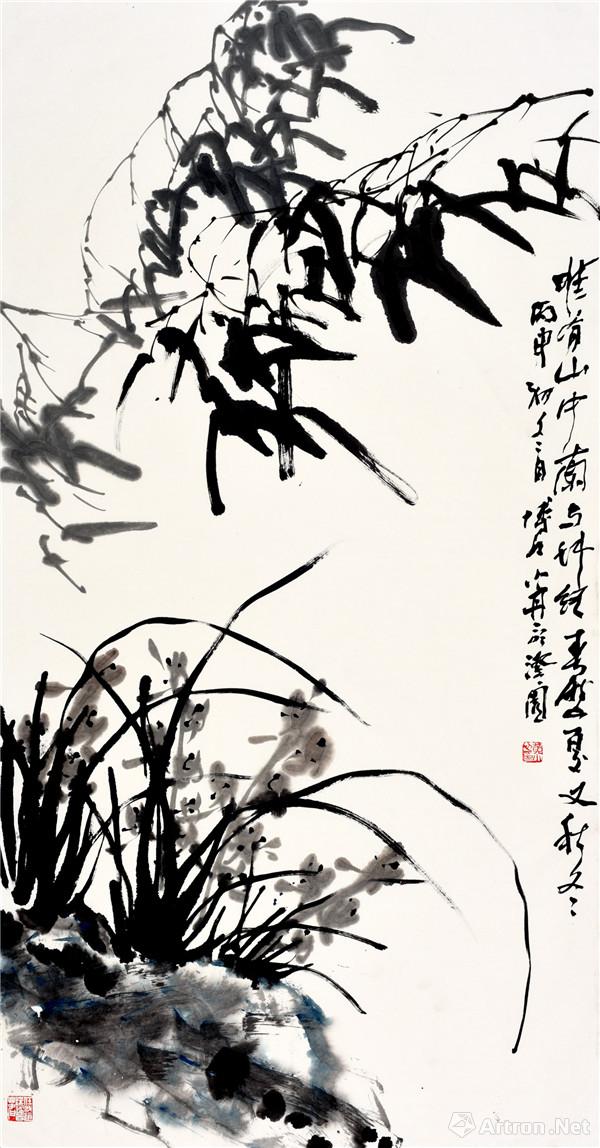 唯有山中蘭与竹經春歷夏又秋冬
丙申初冬月澄園
Artron.Net